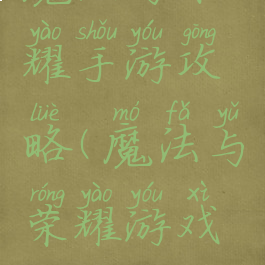 yào shǒu yóu gōng
耀手游攻
lüè mó fǎ yǔ
略(魔法与
róng yào yóu xì
荣耀游戏